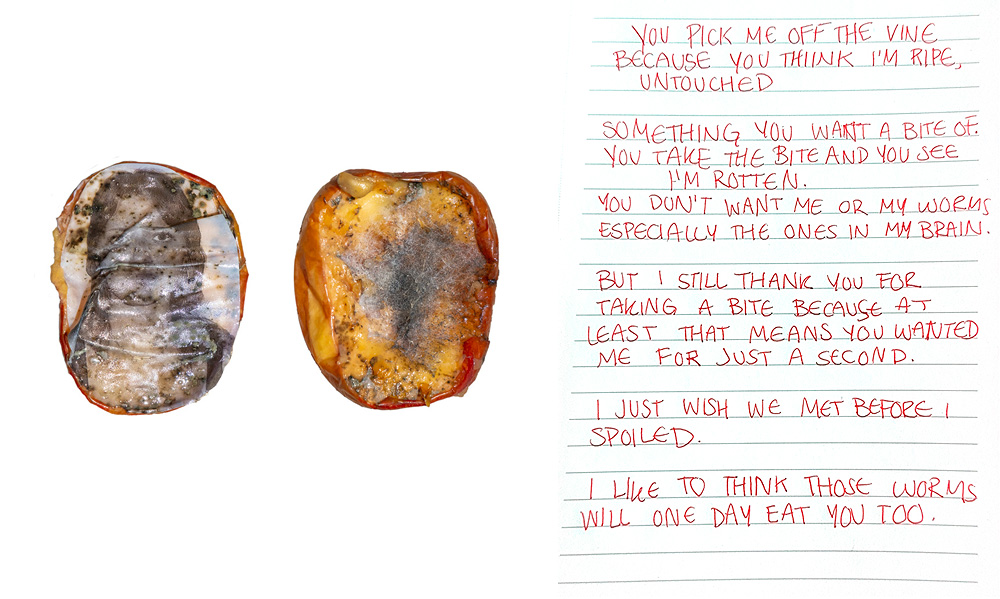 YOU PICK ME OFF THE VINE
BECAUSE YOU THIINK I'M RIPE,
UNTOUCHED
SOMETHING YOU WANT A BITE OF.
YOU TAKE THE BITE AND YOU SEE
I'M ROTTEN.
YOU DON'T WANT ME OR MY WORMS
ESPECIALLY THE ONES IN MY BRAIN.
BUT I STILL THANK YOU FOR
TAKING A BITE BECAUSE AT
LEAST THAT MEANS YOU WANTED
ME FOR JUST A SECOND.
I JUST WISH WE MET BEFORE I
SPOILED.
I LIKE TO THINK THOSE WORMS
WILL ONE DAY EAT YOU TOO.